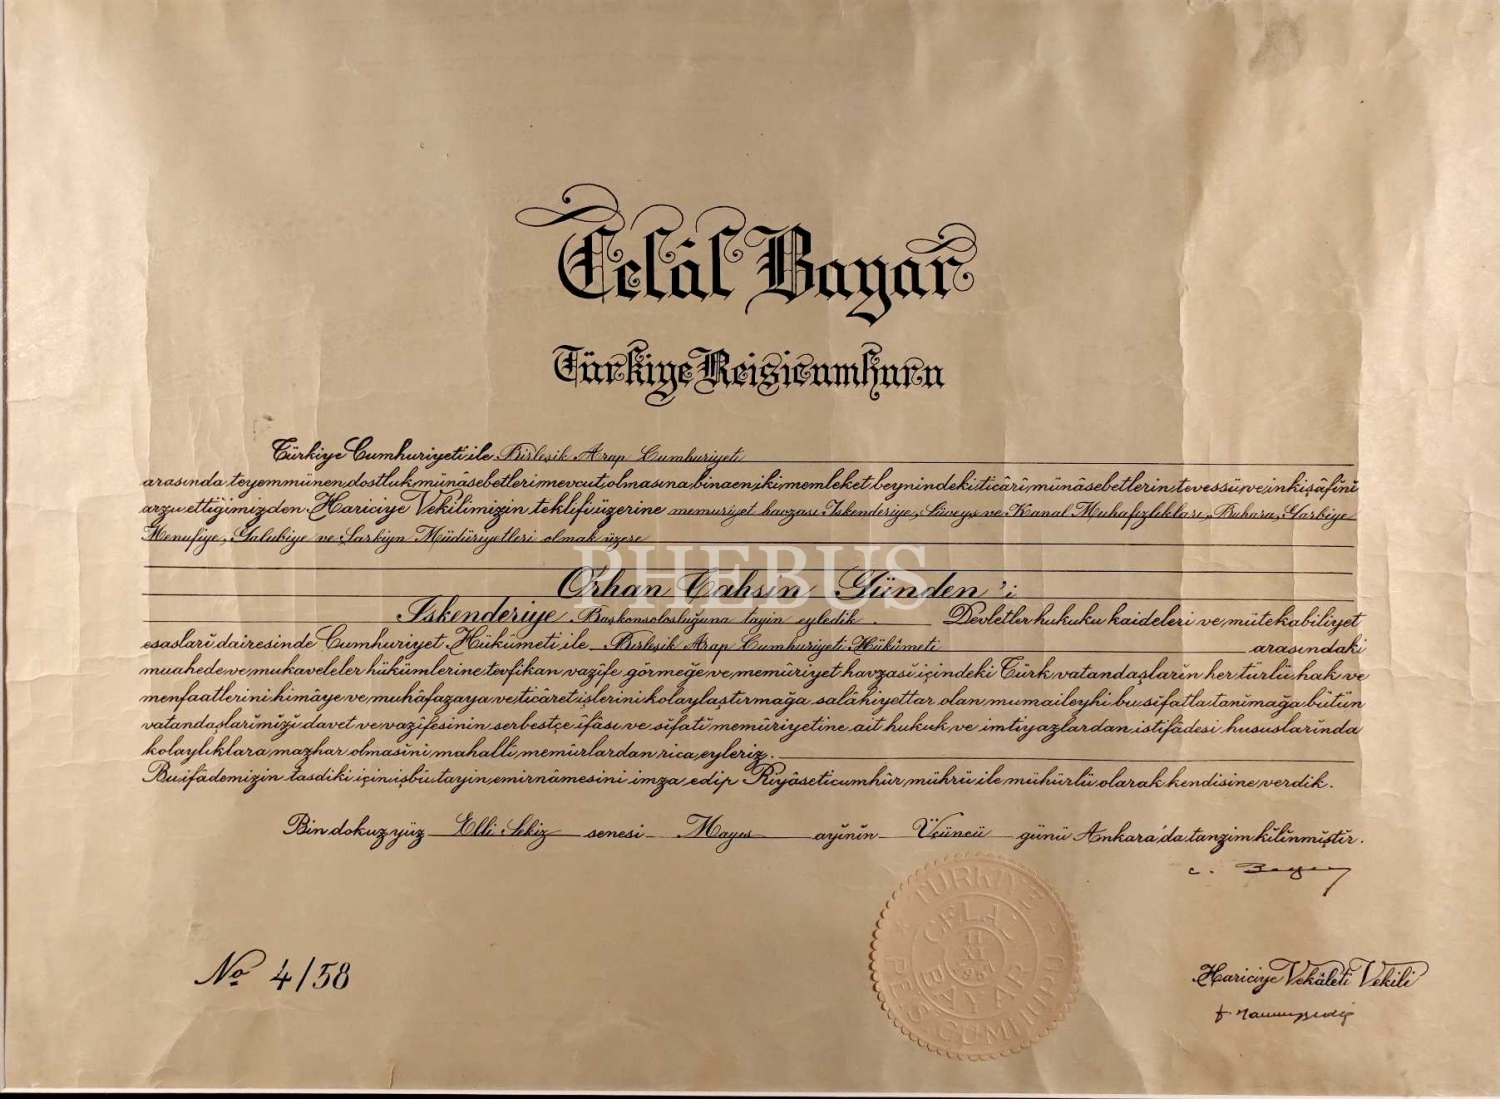 Celâl Bayar
Türkiye Reisicumhuru
Türkiye Cumhuriyeti ile Birleşik Arap Cumhuriyeti
arasında teyemmünen dostluk münâsebetleri mevcut olmasına binaen iki memleket beynindeki ticâri münâsebetlerin tevessü ve inkişâfini
arzu ettiğimizden Hariciye Vekilimizin teklifi üzerine memuriyet havzası İskenderiye, Süveyş ve Kanal Muhafızlıkları, Buhara, Garbiye
Menufiye, Galubiye ve Şarkiya Müdüriyetleri olmak üzere
PHEBUS
Orhan Tahsin Günden 'i
İskenderiye Başkonsolosluğuna tayin eyledik. Devletler hukuku kaideleri ve mütekabiliyet
esaslari dairesinde Cumhuriyet Hükümeti ile Birleşik Arap Cumhuriyeti Hükûmeti arasındaki
muahede ve mukaveleler hükümlerine tevfikan vazife görmeğe ve memûriyet havzası içindeki Türk vatandaşların her türlü hak ve
menfaatlerini himâye ve muhâfazaya ve ticâret işlerini kolaylaştırmağa salâhiyettar olan mumaileyhi bu sıfatla tanımağa bütün
vatandaşlarımızı davet ve vazifesinin serbestçe ifâsı ve sıfatı memûriyetine ait hukuk ve imtiyazlardan istifâdesi hususlarında
kolaylıklara mazhar olmasıni mahalli memûrlardan rica eyleriz.
Bu ifâdemizin tasdiki için işbu tayin emirnâmesini imza edip Riyâseticumhûr mührü ile mühürlü olarak kendisine verdik.
Bin dokuz yüz Elli Sekiz senesi Mayıs ayının Üçüncü günü Ankara'da tanzim kılınmıştır.
C. Bayar
TÜRKİYE
CELAL
BAYAR
REİSİCUMHURU
No 4/58
Hariciye Vekâleti Vekili